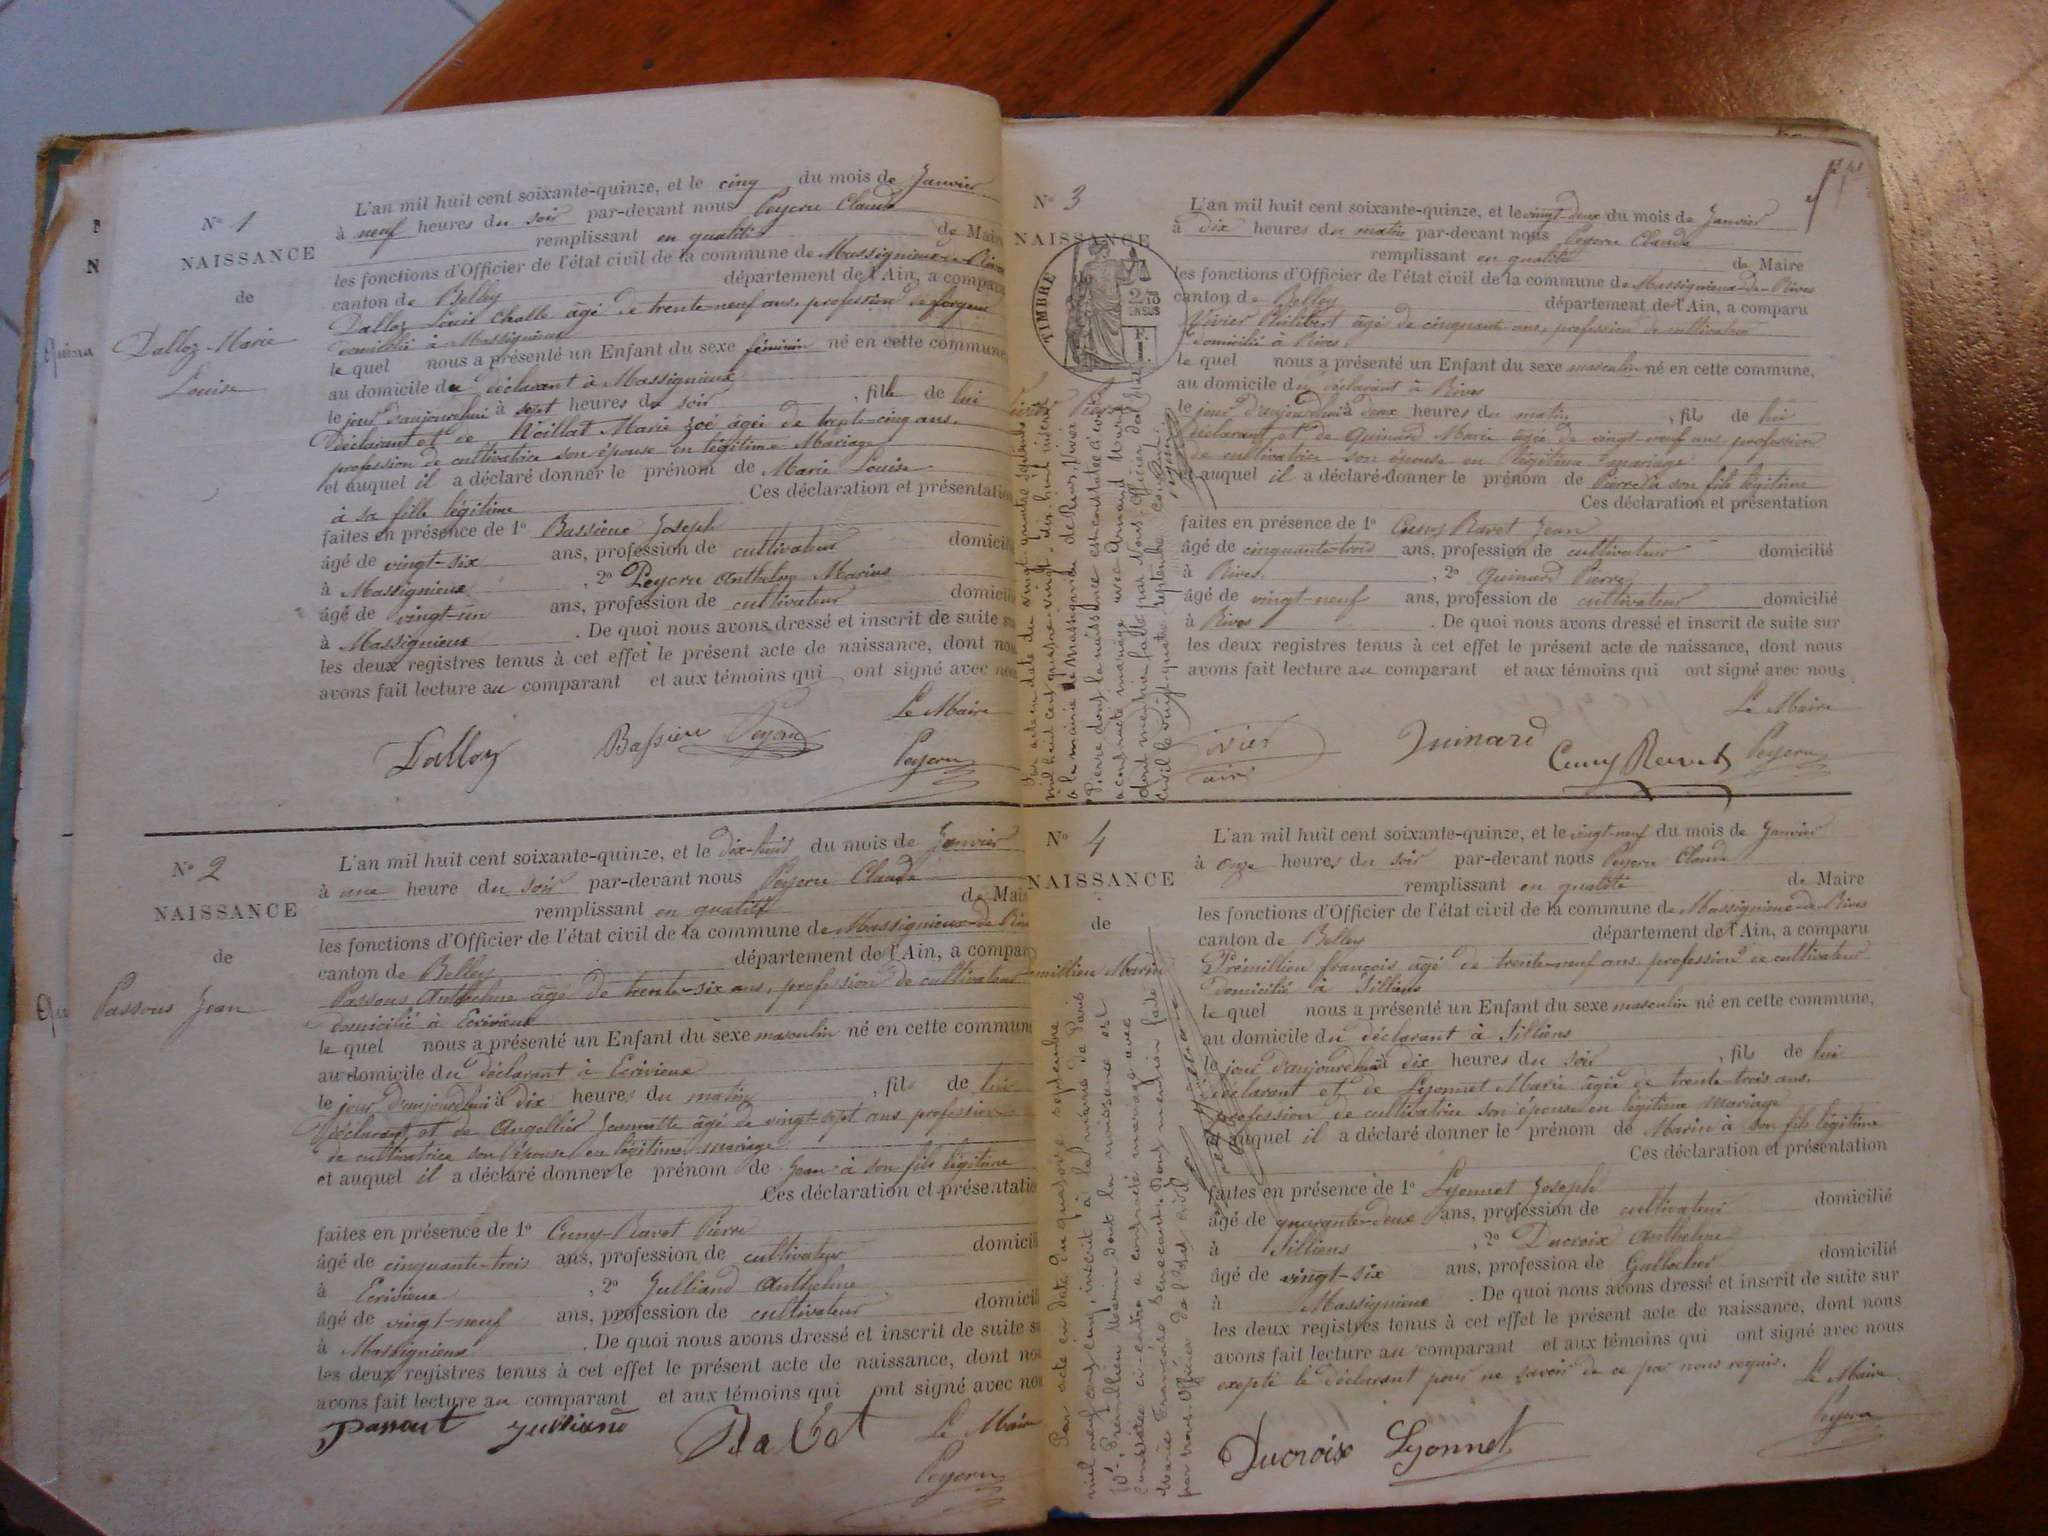 N° 1
NAISSANCE
de
Dalloz Marie
Louise
L'an mil huit cent soixante-quinze, et le cinq du mois de Janvier
à neuf heures du soir par-devant nous Peyeru Claude
remplissant en qualité de Maire
les fonctions d'Officier de l'état civil de la commune de Massignieux-de-Rives
canton de Belley département de l'Ain, a compar
Dalloz Louis âgé de trente-neuf ans, profession de forgeur
domicilié à Massignieux
le quel nous a présenté un Enfant du sexe féminin né en cette commune,
au domicile du déclarant à Massignieux
le jour d'aujourd'hui à sept heures du soir , fille de lui
déclarant et de Noillat Marie Zoé âgée de trente-cinq ans,
profession de cultivatrice son épouse en légitime Mariage
et auquel il a déclaré donner le prénom de Marie Louise
à sa fille légitime Ces déclaration et présentation
faites en présence de 1° Bassieue Joseph
âgé de vingt-six ans, profession de cultivateur domicili
à Massignieux , 2° Peyeru Anthelme Marius
âgé de vingt-un ans, profession de cultivateur domicili
à Massignieux . De quoi nous avons dressé et inscrit de suite su
les deux registres tenus à cet effet le présent acte de naissance, dont nou
avons fait lecture au comparant et aux témoins qui ont signé avec nou
Le Maire
Dalloz Bassieu Peyeru Peyeru
N° 2
NAISSANCE
de
Passous Jean
L'an mil huit cent soixante-quinze, et le dix-huit du mois de Janvier
à une heure du soir par-devant nous Peyeru Claude
remplissant en qualité de Mai
les fonctions d'Officier de l'état civil de la commune de Massignieux-de-Rive
canton de Belley département de l'Ain, a compar
Passous Anthelme âgé de trente-six ans, profession de cultivateur
domicilié à Ecrivieux
le quel nous a présenté un Enfant du sexe masculin né en cette commun
au domicile du déclarant à Ecrivieux
le jour d'aujourd'hui à dix heures du matin , fils de lui
déclarant et de Angellier Jeannette âgé de vingt-sept ans profession
de cultivatrice son épouse en légitime mariage
et auquel il a déclaré donner le prénom de Jean à son fils légitime
Ces déclaration et présentatio
faites en présence de 1° Cuny-Ravet Pierre
âgé de cinquante-trois ans, profession de cultivateur domicili
à Ecrivieux , 2° Julliand Anthelme
âgé de vingt-neuf ans, profession de cultivateur domicili
à Massignieux . De quoi nous avons dressé et inscrit de suite s
les deux registres tenus à cet effet le présent acte de naissance, dont no
avons fait lecture au comparant et aux témoins qui ont signé avec nou
Julliand Le Maire
Peyeru
N° 3
NAISSANCE
TIMBRE
L'an mil huit cent soixante-quinze, et le vingt-deux du mois de Janvier
à dix heures du matin par-devant nous Peyeru Claude
remplissant en qualité de Maire
les fonctions d'Officier de l'état civil de la commune de Massignieux-de-Rives
canton de Belley département de l'Ain, a comparu
Vivier Philibert âgé de cinquante ans, profession de cultivateur
domicilié à Rives
le quel nous a présenté un Enfant du sexe masculin né en cette commune,
au domicile du déclarant à Rives
le jour d'aujourd'hui à deux heures du matin , fils de lui
déclarant et de Guinard Marie âgée de vingt-neuf ans profession
de cultivatrice son épouse en légitime mariage
et auquel il a déclaré donner le prénom de Pierre à son fils légitime
Ces déclaration et présentation
faites en présence de 1° Cuny Ravet Jean
âgé de cinquante-trois ans, profession de cultivateur domicilié
à Rives , 2° Guinard Pierre
âgé de vingt-neuf ans, profession de cultivateur domicilié
à Rives . De quoi nous avons dressé et inscrit de suite sur
les deux registres tenus à cet effet le présent acte de naissance, dont nous
avons fait lecture au comparant et aux témoins qui ont signé avec nous.
Le Maire
Guinard Cuny Ravet Peyeru
Par acte en date du vingt-quatre septembre
mil huit cent quatre-vingt-dix-huit
à la mairie de Massignieu de Rives, Vivier
Pierre dont la naissance est constatée ci-contre
a contracté mariage avec
dont mention faite par Nous, Officier de l'état
civil le vingt-quatre septembre
N° 4
NAISSANCE
de
Prémillieu Marin
L'an mil huit cent soixante-quinze, et le vingt-neuf du mois de Janvier
à onze heures du soir par-devant nous Peyeru Claude
remplissant en qualité de Maire
les fonctions d'Officier de l'état civil de la commune de Massignieux-de-Rives
canton de Belley département de l'Ain, a comparu
Prémillieu françois âgé de trente-neuf ans, profession de cultivateur
domicilié à Silliens
le quel nous a présenté un Enfant du sexe masculin né en cette commune,
au domicile du déclarant à Silliens
le jour d'aujourd'hui à dix heures du soir , fils de lui
déclarant et de Lyonnet Marie âgée de trente-trois ans,
profession de cultivatrice son épouse en légitime mariage
auquel il a déclaré donner le prénom de Marin à son fils légitime
Ces déclaration et présentation
faites en présence de 1° Lyonnet Joseph
âgé de quarante-deux ans, profession de cultivateur domicilié
à Silliens , 2° Ducroix Anthelme
âgé de vingt-six ans, profession de Galocher domicilié
à Massignieux . De quoi nous avons dressé et inscrit de suite sur
les deux registres tenus à cet effet le présent acte de naissance, dont nous
avons fait lecture au comparant et aux témoins qui ont signé avec nous
exepté le déclarant pour ne savoir de ce par nous requis. Le Maire
Ducroix Lyonnet Peyeru
Par acte en date du quatorze septembre
mil neuf cent cinq, inscrit à la mairie de Paris
Prémillieu Marin dont la naissance est
constatée ci-contre a contracté mariage avec
Marie Françoise Dont mention faite
par nous Officier de l'état civil